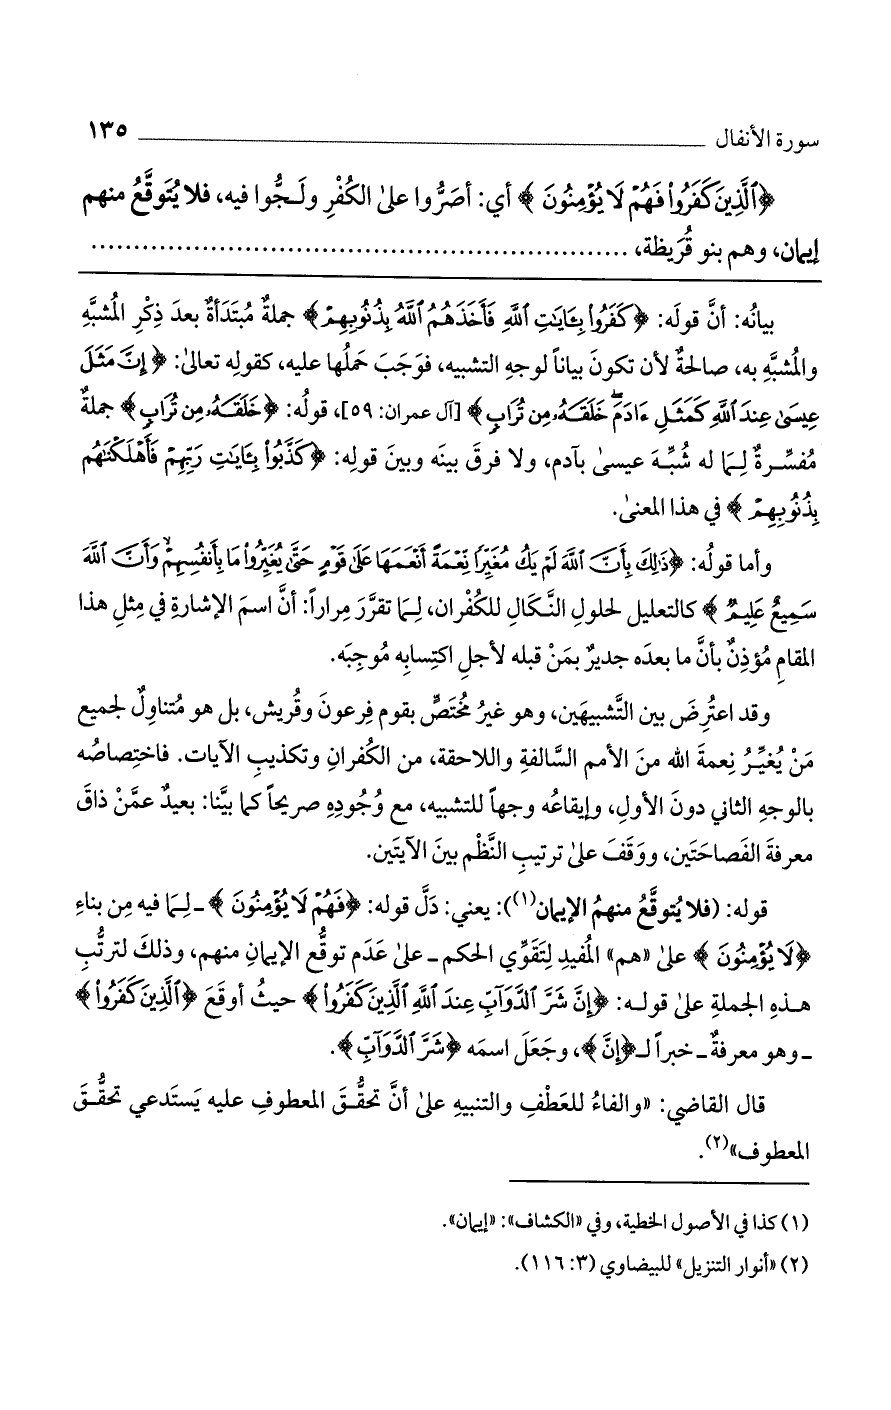 سورة الأنفال ١٣٥
﴿ٱلَّذِينَ كَفَرُوا۟ فَهُمْ لَا يُؤْمِنُونَ﴾ أي: أصَرُّوا على الكُفْرِ ولَجُّوا فيه، فلا يُتَوقَّعُ منهم
إيمان، وهم بنو قُرَيظة، ................................................................
بيانُه: أنَّ قولَه: ﴿كَفَرُوا۟ بِـَٔايَـٰتِ ٱللَّهِ فَأَخَذَهُمُ ٱللَّهُ بِذُنُوبِهِمْ﴾ جملةٌ مُبْتَدَأةٌ بعدَ ذِكْرِ المُشبَّهِ
والمُشبَّهِ به، صالحةٌ لأن تكونَ بياناً لوجهِ التشبيه، فوَجَبَ حَملُها عليه، كقولِه تعالىٰ: ﴿إِنَّ مَثَلَ
عِيسَىٰ عِندَ ٱللَّهِ كَمَثَلِ ءَادَمَ ۖ خَلَقَهُۥ مِن تُرَابٍ﴾ [آل عمران: ٥٩]، قولُه: ﴿خَلَقَهُۥ مِن تُرَابٍ﴾ جملةٌ
مُفسِّرةٌ لِمَا له شُبِّهَ عيسىٰ بآدم، ولا فرقَ بينَه وبينَ قولِه: ﴿كَذَّبُوا۟ بِـَٔايَـٰتِ رَبِّهِمْ فَأَهْلَكْنَـٰهُم
بِذُنُوبِهِمْ﴾ في هذا المعنىٰ.
وأما قولُه: ﴿ذَٰلِكَ بِأَنَّ ٱللَّهَ لَمْ يَكُ مُغَيِّرًا نِّعْمَةً أَنْعَمَهَا عَلَىٰ قَوْمٍ حَتَّىٰ يُغَيِّرُوا۟ مَا بِأَنفُسِهِمْ ۙ وَأَنَّ ٱللَّهَ
سَمِيعٌ عَلِيمٌ﴾ كالتعليل لحلولِ النَّكَالِ للكُفْران، لِمَا تقرَّرَ مِراراً: أنَّ اسمَ الإشارةِ في مِثلِ هذا
المقامِ مُؤذِنٌ بأنَّ ما بعدَه جديرٌ بمَنْ قبله لأجلِ اكتِسابِه مُوجِبَه.
وقد اعتُرِضَ بين التَّشبيهَين، وهو غيرُ مُختَصٍّ بقوم فِرعونَ وقُريش، بل هو مُتناوِلٌ لجميع
مَنْ يُغيِّرُ نِعمةَ الله منَ الأمم السَّالفةِ واللاحقة، من الكُفرانِ وتكذيبِ الآيات. فاختِصاصُه
بالوجهِ الثاني دونَ الأولِ، وإيقاعُه وجهاً للتشبيه، مع وُجُودِهِ صريحاً كما بيَّنا: بعيدٌ عمَّنْ ذاقَ
معرفةَ الفَصاحَتَين، ووَقَفَ علىٰ ترتيبِ النَّظْم بينَ الآيتَين.
قوله: (فلا يُتوقَّعُ منهمُ الإيمان(١)): يعني: دَلَّ قوله: ﴿فَهُمْ لَا يُؤْمِنُونَ﴾ ـ لِمَا فيه مِن بناءِ
﴿لَا يُؤْمِنُونَ﴾ علىٰ «هم» المُفيدِ لِتَقَوِّي الحكم ـ علىٰ عَدَم توقُّعِ الإيمانِ منهم، وذلكَ لترتُّبِ
هذهِ الجملةِ علىٰ قولِه: ﴿إِنَّ شَرَّ ٱلدَّوَآبِّ عِندَ ٱللَّهِ ٱلَّذِينَ كَفَرُوا۟﴾ حيثُ أوقَعَ ﴿ٱلَّذِينَ كَفَرُوا۟﴾
ـ وهو معرفةٌ ـ خبراً لـ﴿إِنَّ﴾، وجَعَلَ اسمَه ﴿شَرَّ ٱلدَّوَآبِّ﴾.
قال القاضي: «والفاءُ للعَطْفِ والتنبيهِ علىٰ أنَّ تحقُّقَ المعطوفِ عليه يَستَدعي تحقُّقَ
المعطوف»(٢).
(١) كذا في الأصول الخطية، وفي «الكشاف»: «إيمان».
(٢) «أنوار التنزيل» للبيضاوي (٣: ١١٦).